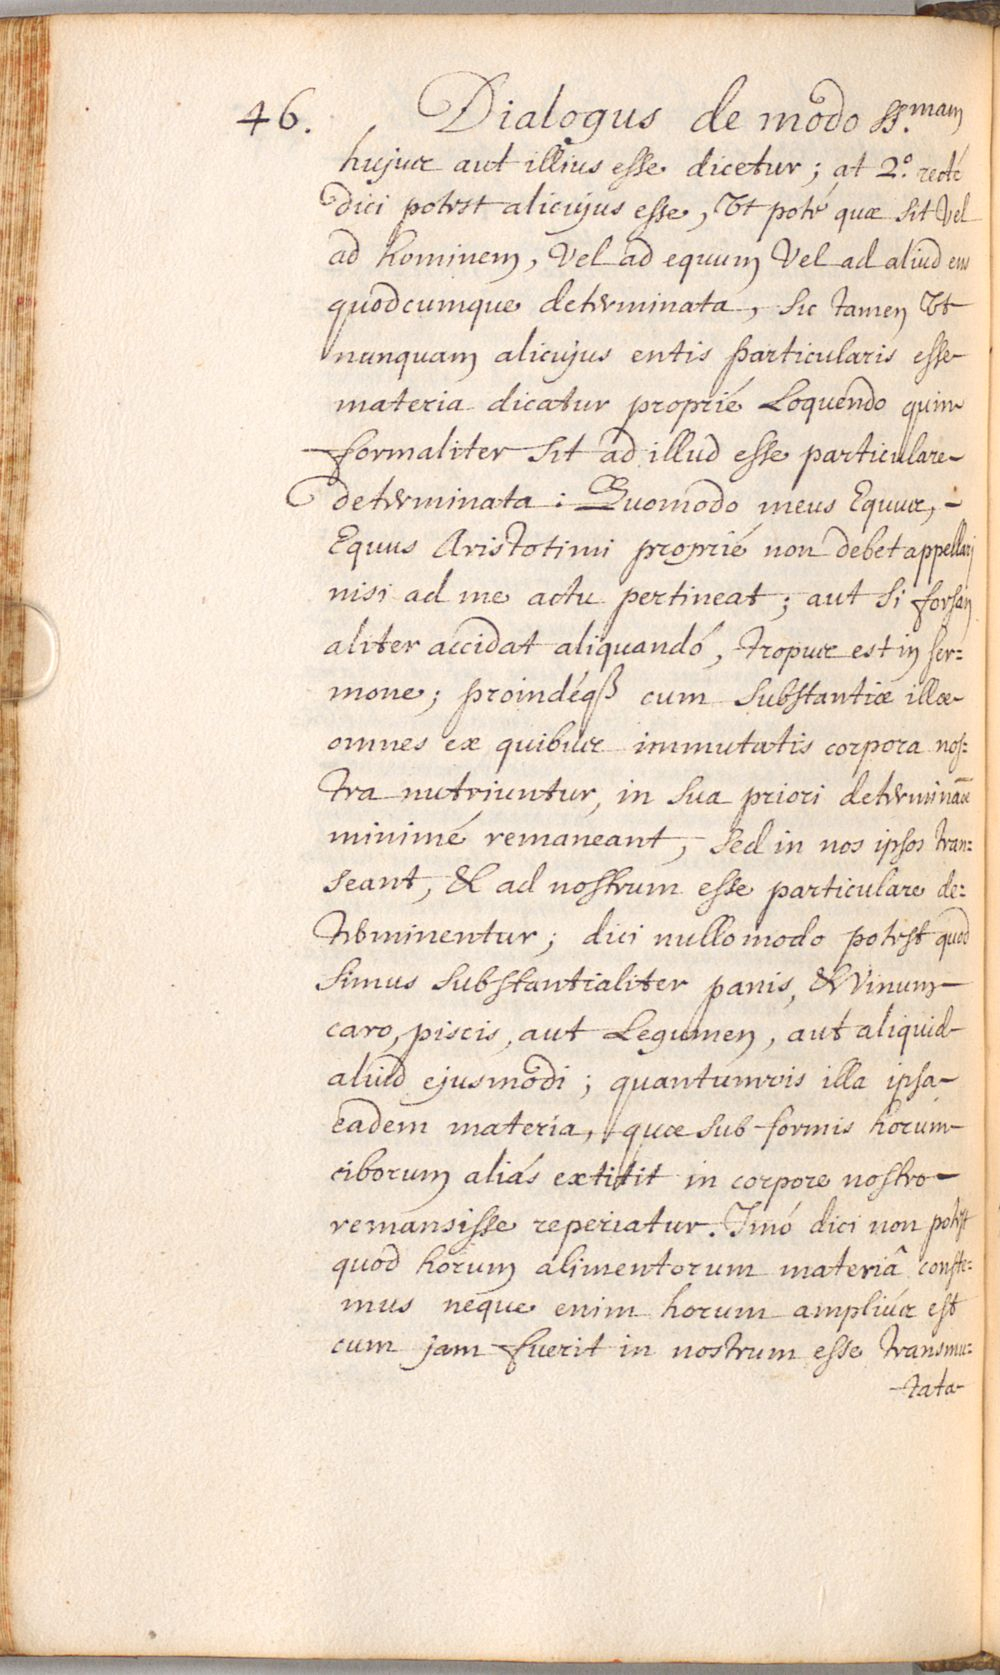 46. Dialogus de modo ss.mam
hujus aut illius esse dicetur; at 2.º recté
dici potest alicujus esse, Vt poté quæ sit Vel
ad hominem, Vel ad equum Vel ad aliud ens
quodcumque determinata, sic tamen Vt
nunquam alicujus entis particularis esse
materia dicatur proprié Loquendo quin
formaliter sit ad illud esse particulare
determinata: Quomodo meus Equus,
Equus Aristotimi proprié non debet appellari
nisi ad me actu pertineat; aut si forsan
aliter accidat aliquandó, tropus est in ser=
mone; proindéqȝ cum substantiæ illæ
omnes ex quibus immutatis corpora nos=
tra nutriuntur, in sua priori determinãõe
minimé remaneant, sed in nos ipsos tran=
seant, & ad nostrum esse particulare de=
terminentur; dici nullomodo potest quod
simus substantialiter panis, & Vinum
caro, piscis, aut Legumen, aut aliquid
aliud ejusmodi; quantumvis illa ipsa
eadem materia, quæ sub formis horum
ciborum aliás extitit in corpore nostro
remansisse reperiatur. Imó dici non potest
quod horum alimentorum materiâ conste=
mus neque enim horum ampliús est
cum jam fuerit in nostrum esse transmu=
tata